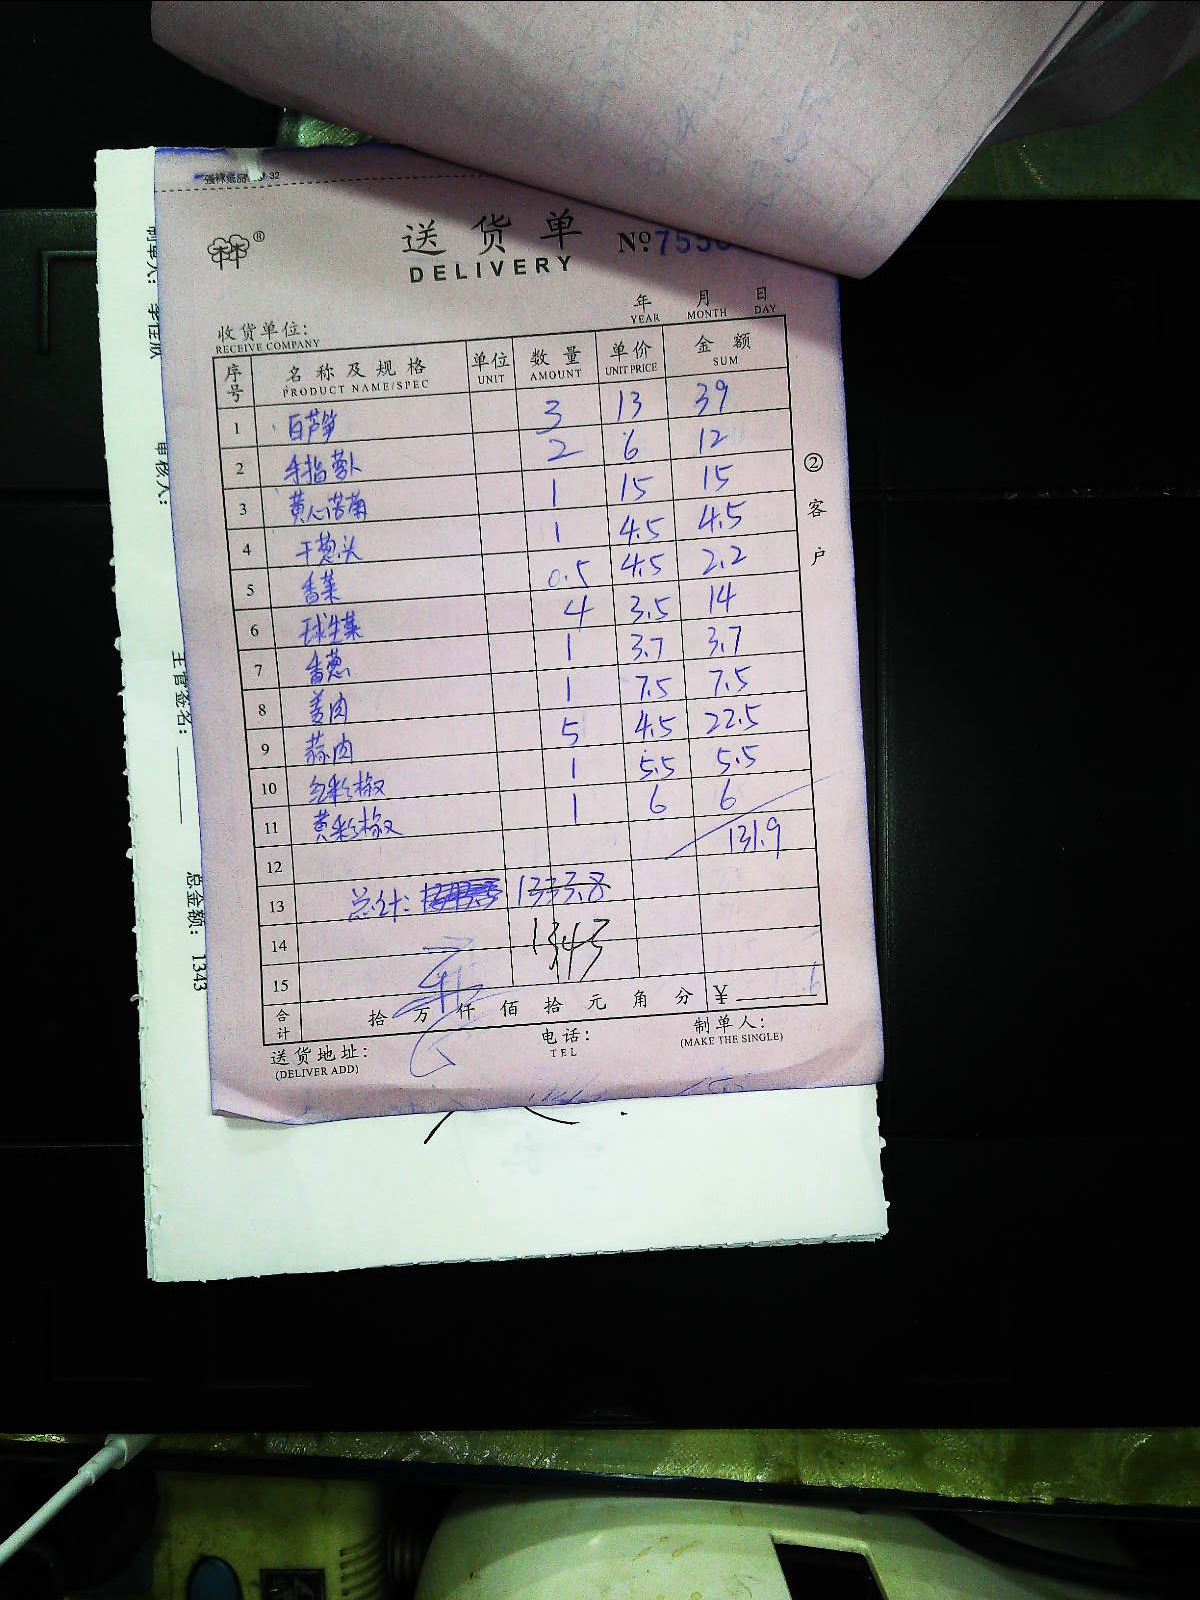 送货单
DELIVERY
年 月 日
YEAR MONTH DAY
收货单位:
RECEIVE COMPANY
序号 名称及规格 单位 数量 单价 金额
PRODUCT NAME/SPEC UNIT AMOUNT UNIT PRICE SUM
1 白芦笋 3 13 39
2 手指萝卜 2 6 12
3 黄心苦菊 1 15 15
4 干葱头 1 4.5 4.5
5 香菜 0.5 4.5 2.2
6 球生菜 4 3.5 14
7 香葱 1 3.7 3.7
8 姜肉 1 7.5 7.5
9 蒜肉 5 4.5 22.5
10 红彩椒 1 5.5 5.5
11 黄彩椒 1 6 6
12 131.9
13 总计: 1333.8
14 1343
15
合计 拾 万 仟 佰 拾 元 角 分 ¥
送货地址: 电话: 制单人:
(DELIVER ADD) TEL (MAKE THE SINGLE)
②客户
审核人:
主管签名:
总金额: 1343